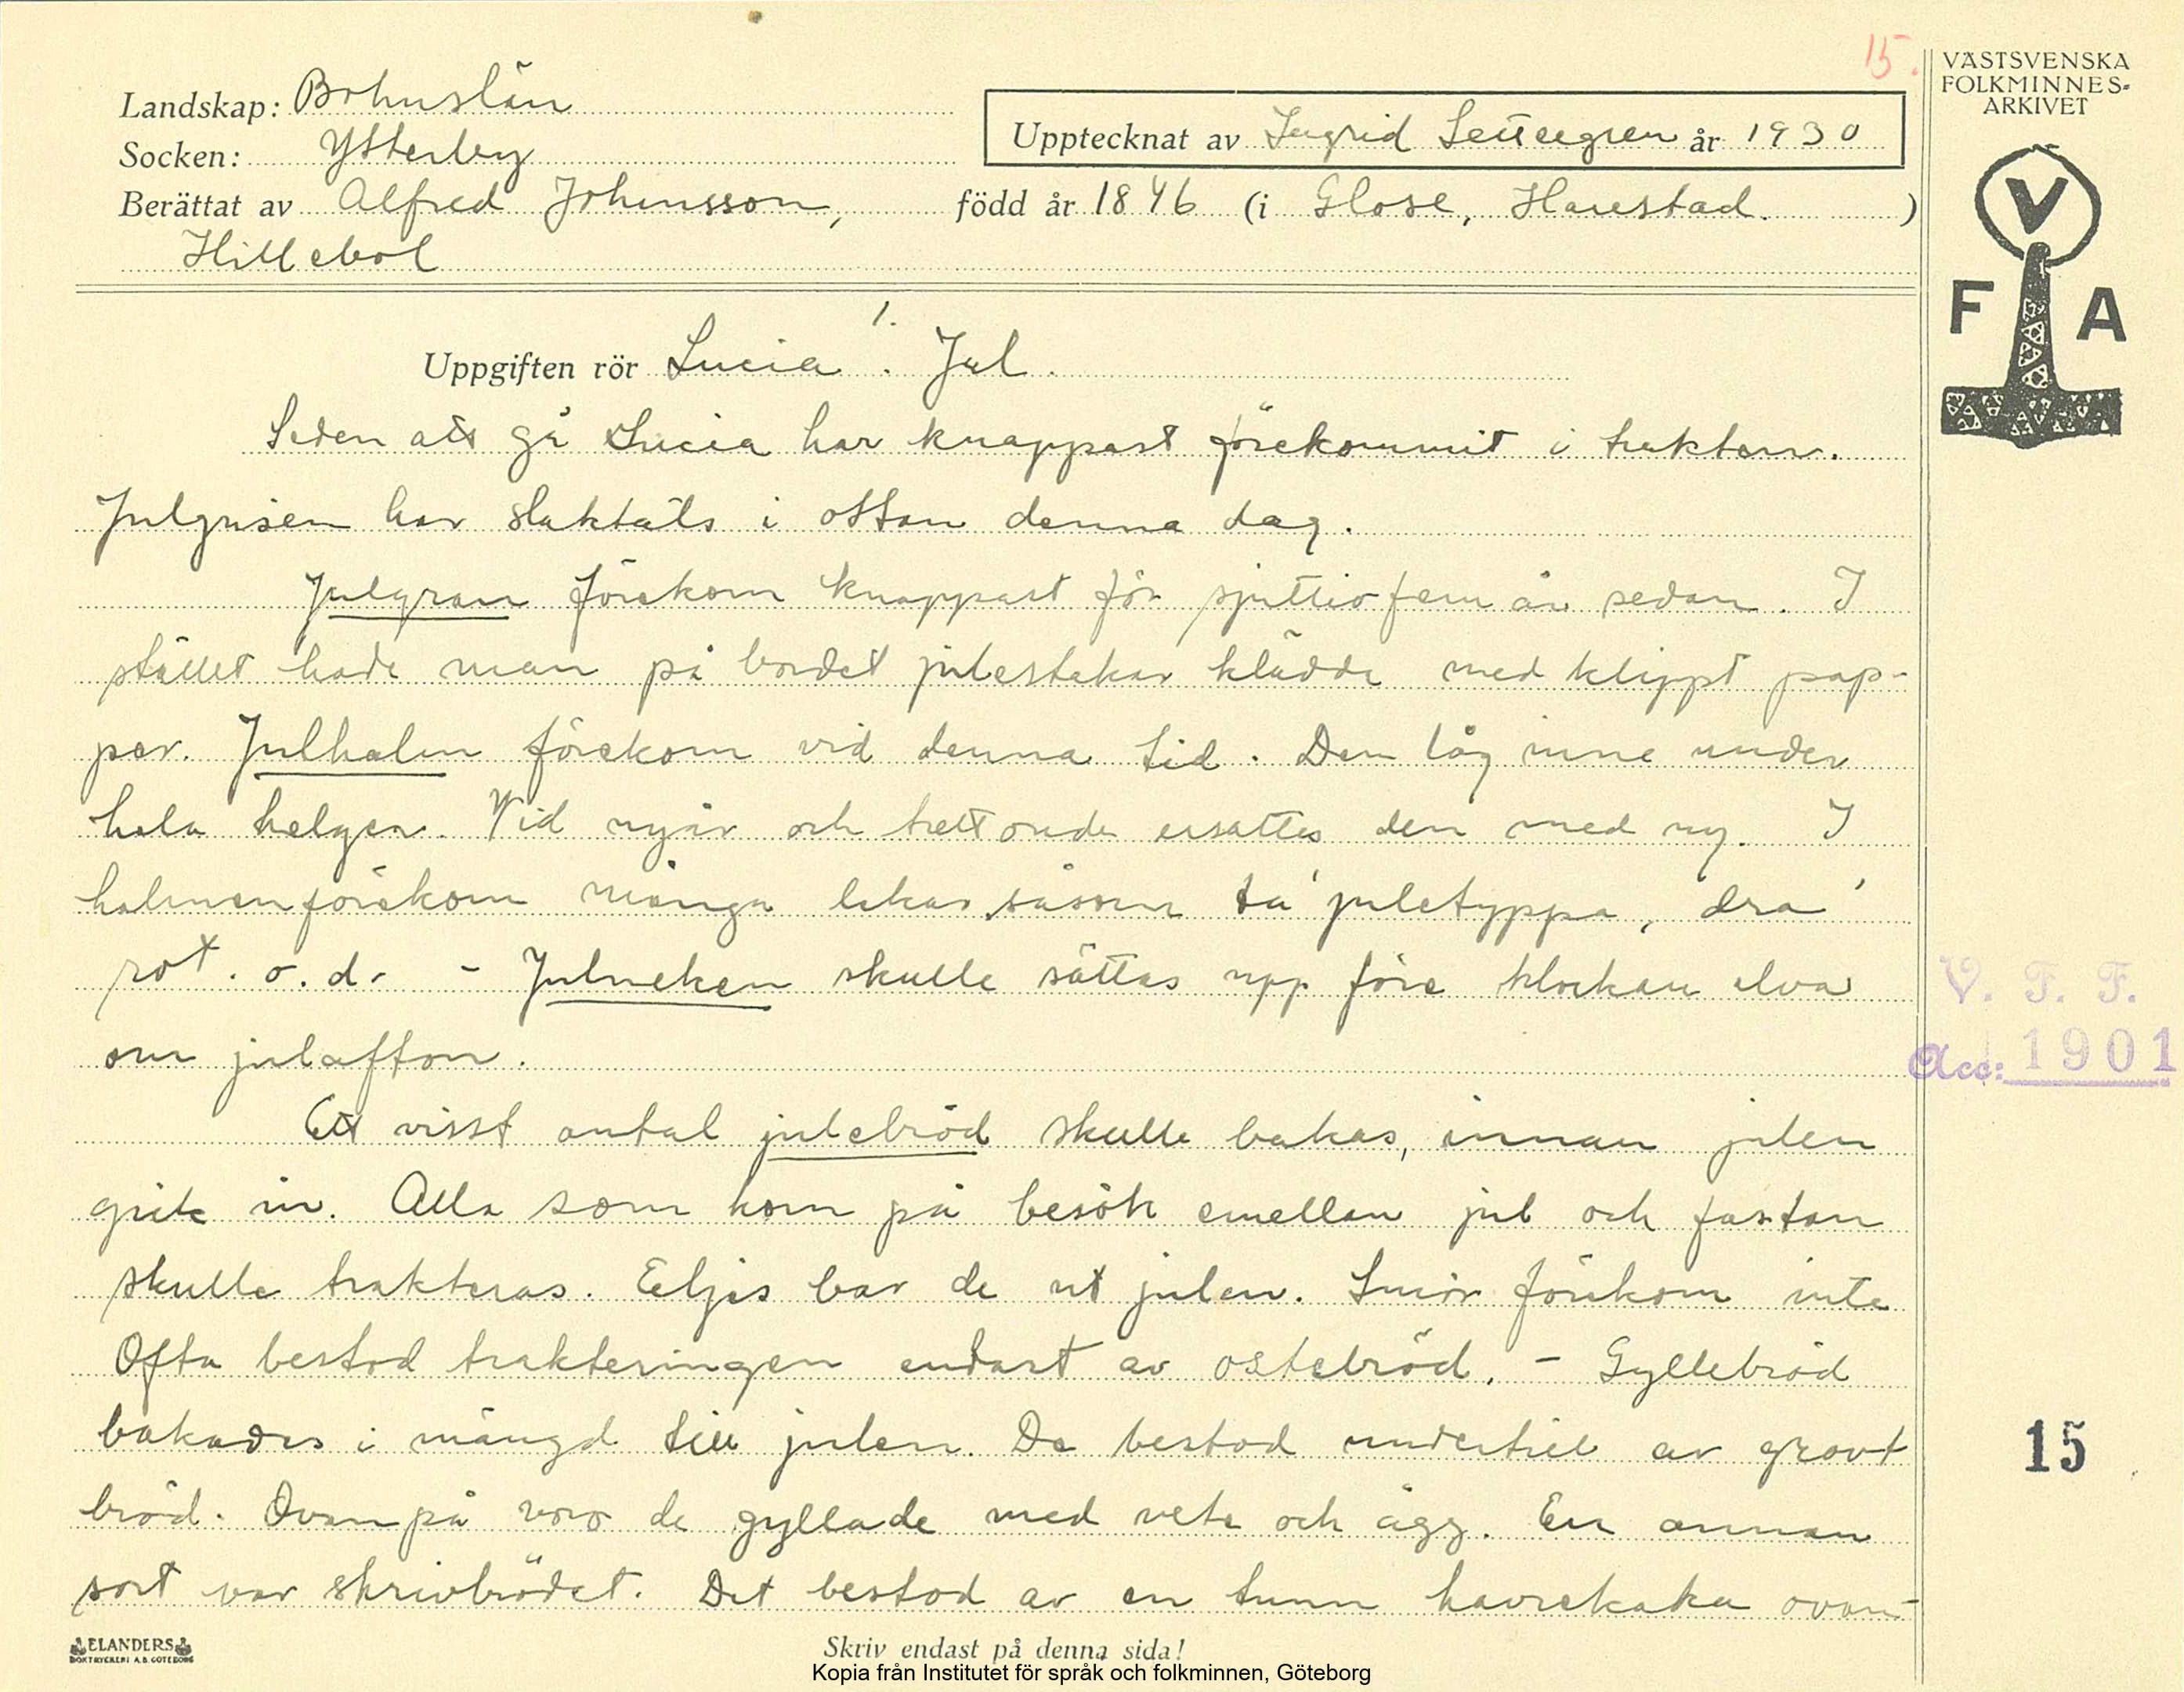 15.
VÄSTSVENSKA
FOLKMINNES-
ARKIVET
V
F A
Landskap: Bohuslän
Socken: Ytterby
Upptecknat av Ingrid Settergren år 1930
Berättat av Alfred Johansson, född år 1846 (i Glose, Harestad.)
Hillebol
1.
Uppgiften rör Lucia. Jul.
Seden att gå Lucia har knappast förekommit i trakten.
Julgrisen har slaktats i ottan denna dag.
Julgran förekom knappast för sjuttiofem år sedan. I
stället hade man på bordet julestakar klädda med klippt pap-
per. Julhalm förekom vid denna tid. Den låg inne under
hela helgen. Vid nyår och trettonde ersattes den med ny. I
halmen förekom många lekar såsom ta juletyppa, dra
rot. o. d. - Julneken skulle sättas upp före klockan elva
om julafton.
Ett visst antal julebröd skulle bakas, innan julen
gick in. Alla som kom på besök emellan jul och fastan
skulle trakteras. Eljes bar de ut julen. Smör förekom inte
Ofta bestod trakteringen endast av ostebröd. - Gyllebröd
bakades i mängd till julen. De bestod undertill av grovt
bröd. Ovanpå voro de gyllade med vete och ägg. En annan
sort var skrivbrödet. Det bestod av en tunn havrekaka ovan-
V. F. F.
Acc: 1901
15
ELANDERS
BOKTRYCKERI A.B. GÖTEBORG
Skriv endast på denna sida!
Kopia från Institutet för språk och folkminnen, Göteborg